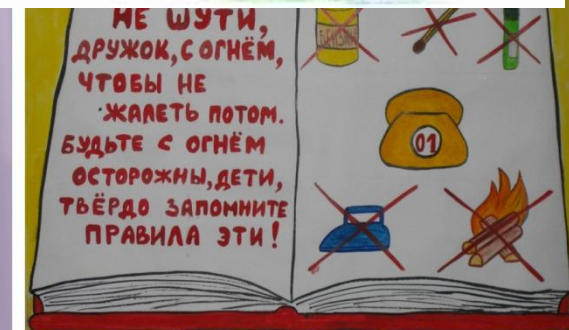 НЕ ШУТИ,
ДРУЖОК, С ОГНЁМ,
ЧТОБЫ НЕ
ЖАЛЕТЬ ПОТОМ.
БУДЬТЕ С ОГНЁМ
ОСТОРОЖНЫ, ДЕТИ,
ТВЁРДО ЗАПОМНИТЕ
ПРАВИЛА ЭТИ!
БЕНЗИН
01